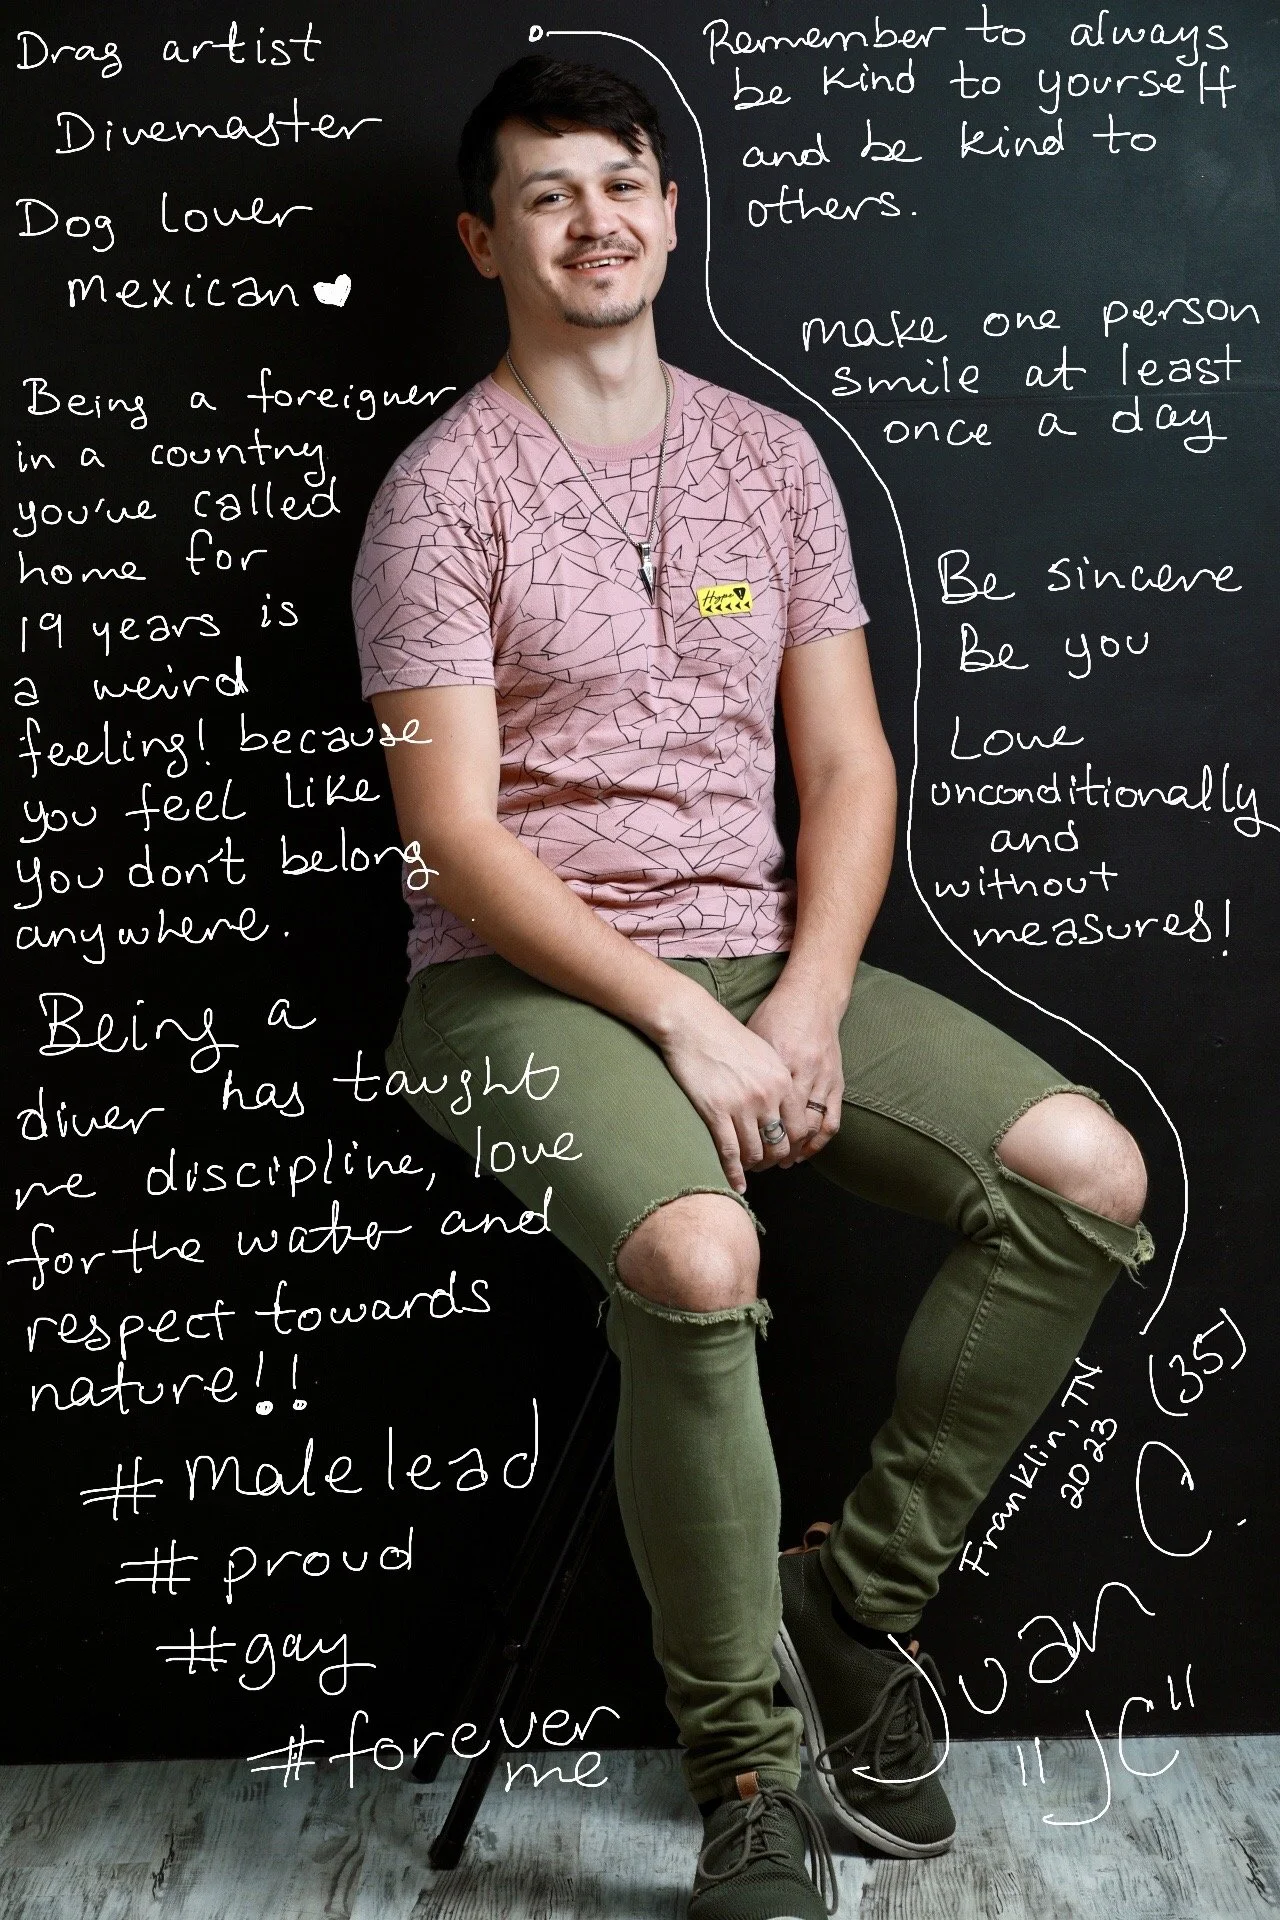 Drag artist
Divemaster
Dog lover
mexican
Being a foreigner
in a country
you've called
home for
19 years is
a weird
feeling! because
you feel like
you don't belong
anywhere.
Being a
diver has taught
me discipline, love
for the water and
respect towards
nature!!
#malelead
#proud
#gay
#forever
me
Remember to always
be kind to yourself
and be kind to
others.
make one person
smile at least
once a day
Be sincere
Be you
Love
unconditionally
and
without
measures!
Hype!
Franklin, TN
2023
(35)
Juan C.
"JC"